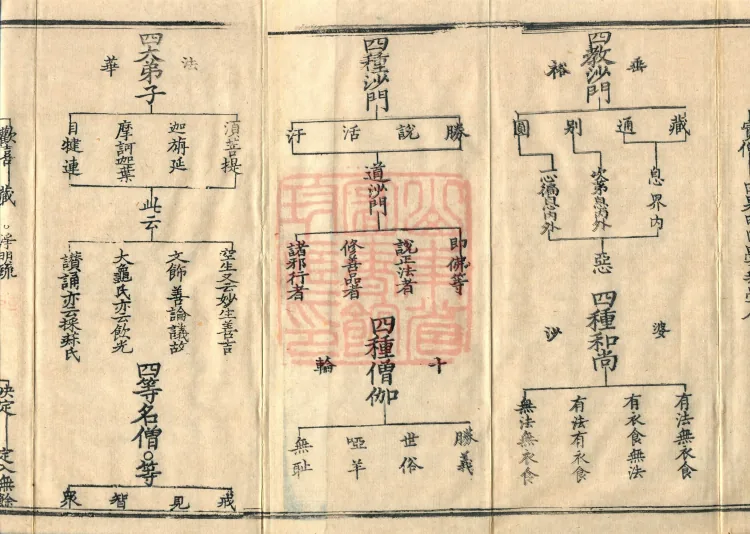 四教沙門
垂裕
藏
通
別
圓
息界內
次第息內外
一心徧息內外
惡
四種和尚
婆沙
有法無衣食
有衣食無法
有法有衣食
無法無衣食
四種沙門
勝
說
活
汙
道沙門
即佛等
說正法者
修善品者
諸邪行者
四種僧伽
十輪
勝義
世俗
啞羊
無耻
四大弟子
法華
須菩提
迦旃延
摩訶迦葉
目犍連
此云
空生又云妙生善吉
文飾善論議故
大龜氏亦云飲光
讚誦亦云採菽氏
四等名僧等
戒
見
智
眾
歡喜
藏
淨明疏
決定
定入無餘